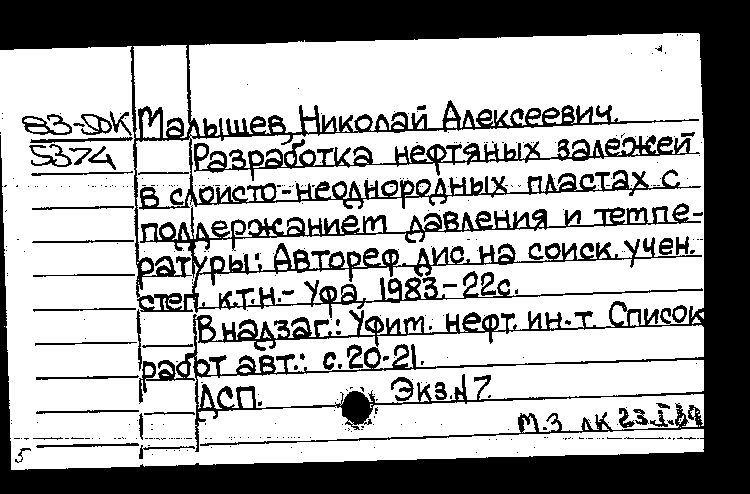 83-5ДК Малышев, Николай Алексеевич.
5374 Разработка нефтяных залежей
в слоисто-неоднородных пластах с
поддержанием давления и темпе-
ратуры: Автореф. дис. на соиск. учен.
степ. к.т.н.- Уфа, 1983.-22с.
В надзаг.: Уфим. нефт. ин-т. Список
работ авт.: с.20-21.
ДСП. Экз.N7.
М.З ЛК 23.I.84
5